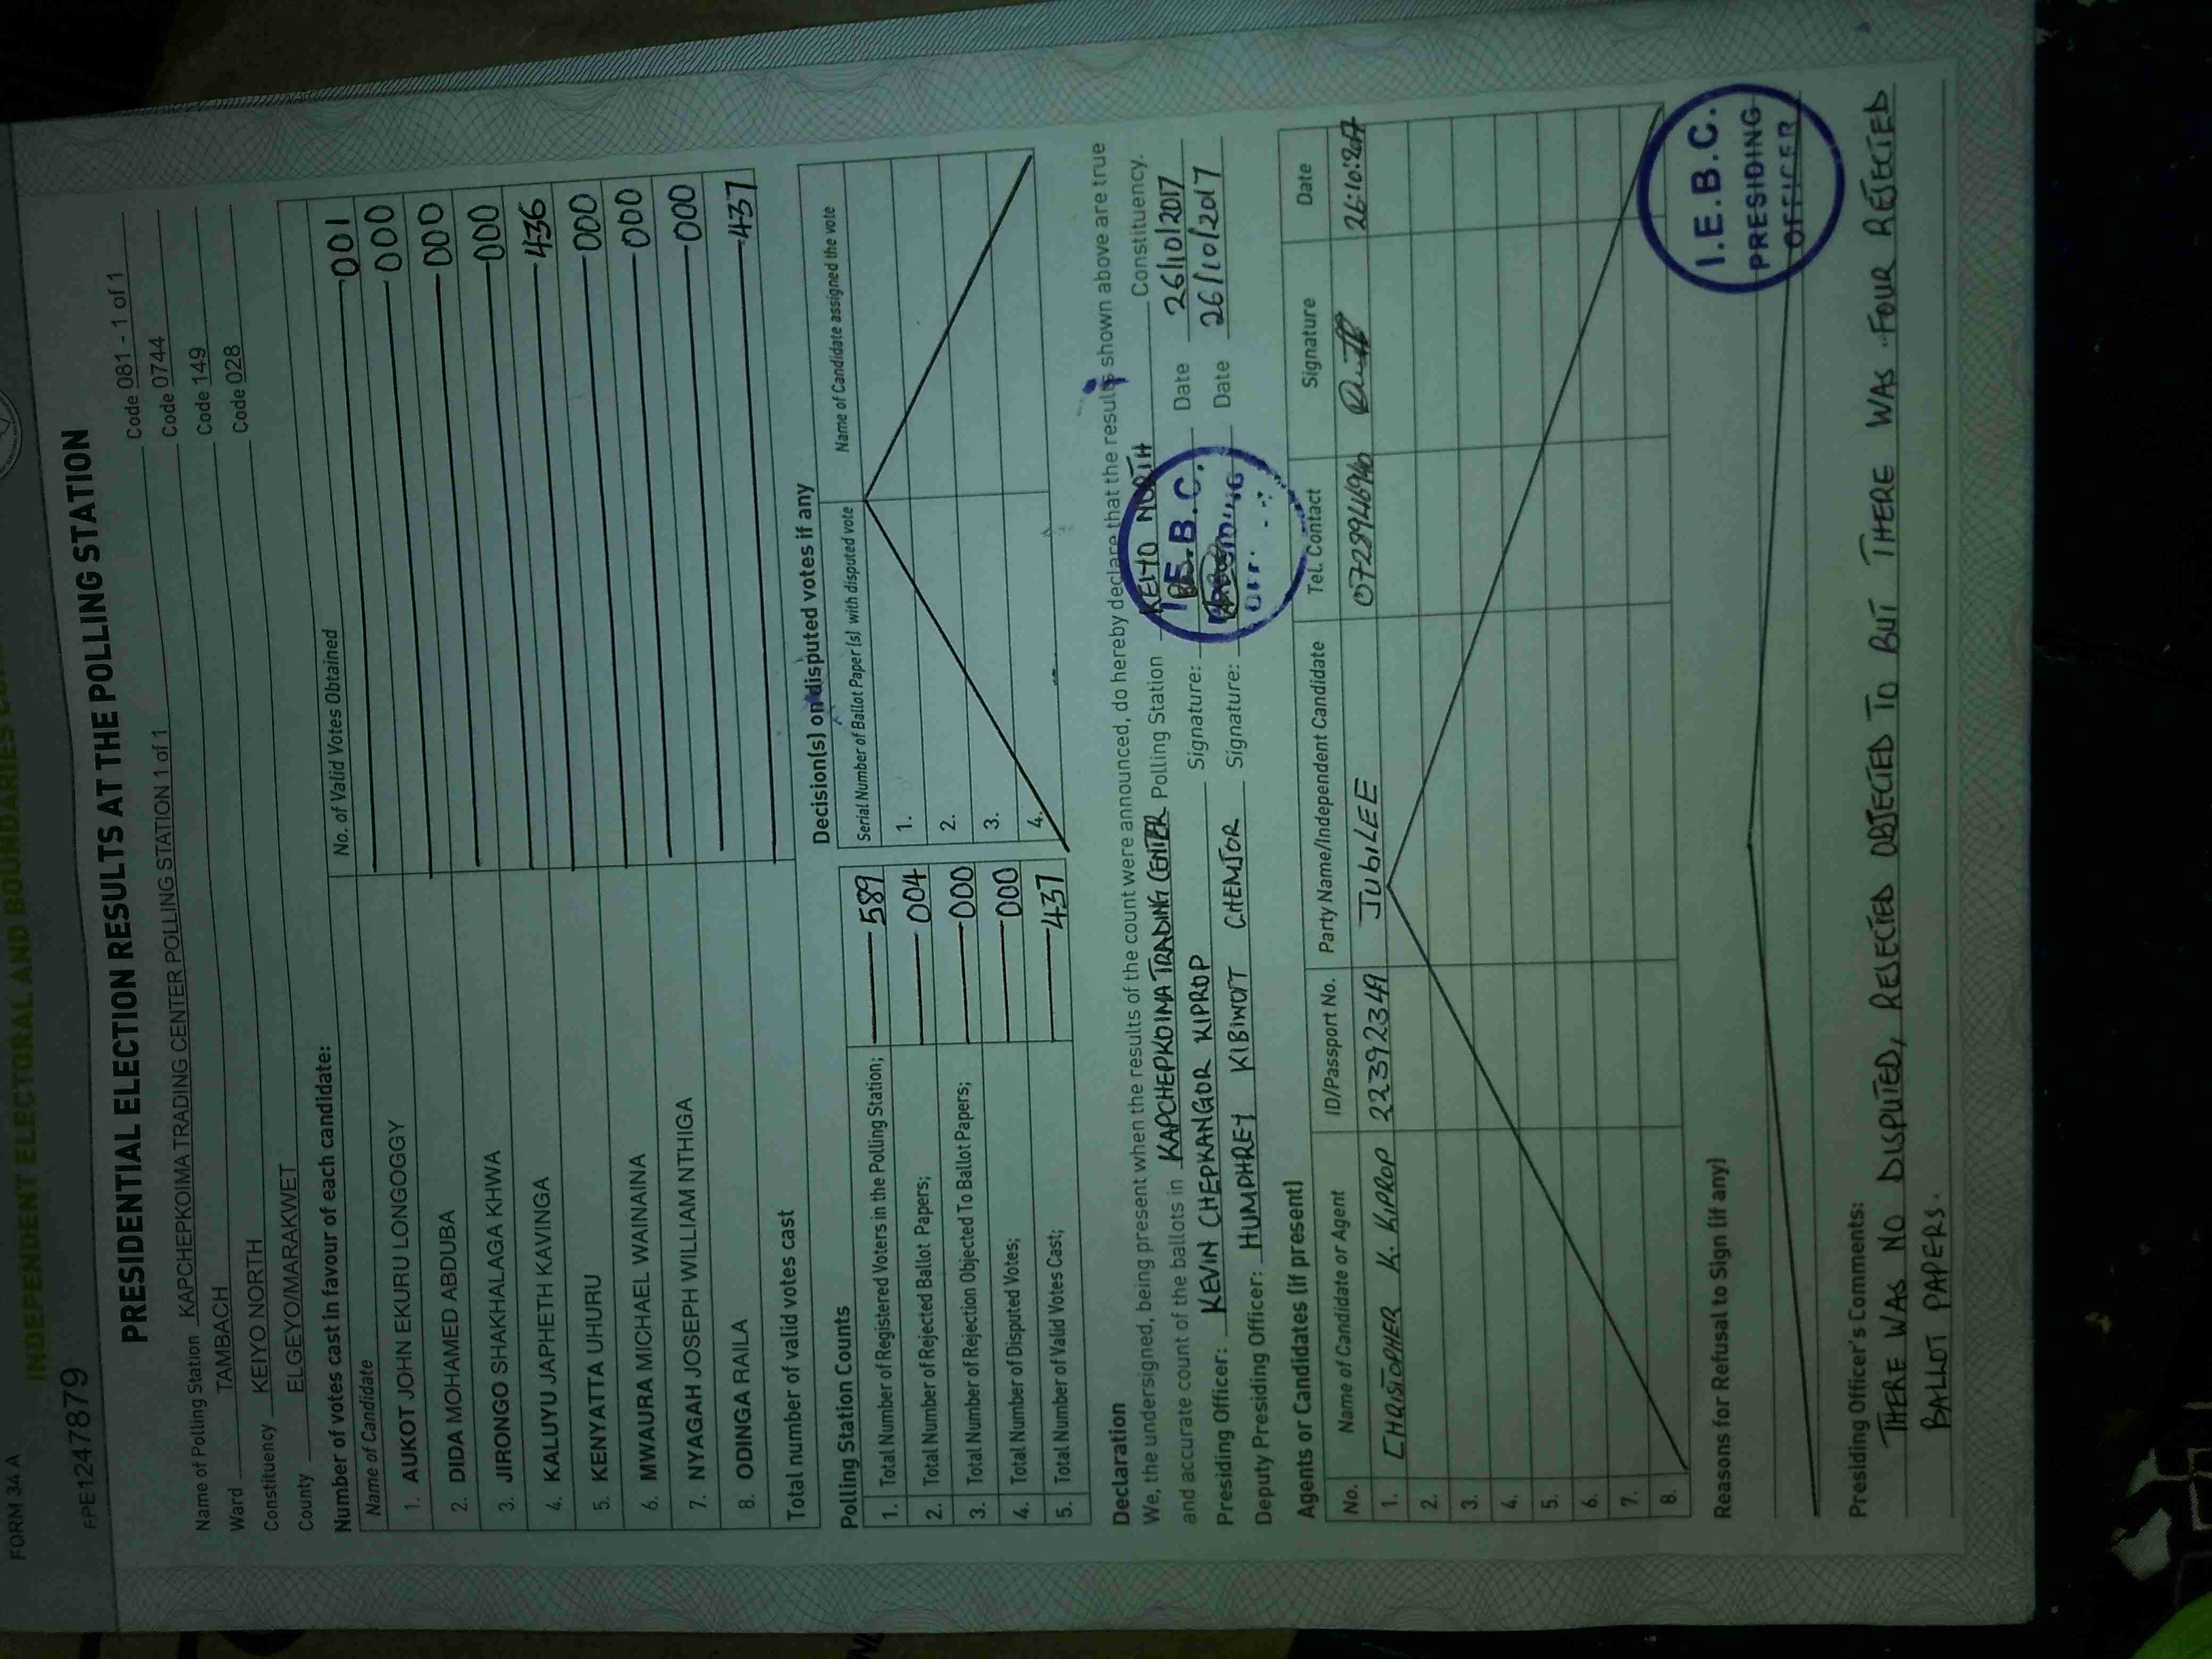 FORM 34 A
INDEPENDENT ELECTORAL AND BOUNDARIES
FPE1247879
PRESIDENTIAL ELECTION RESULTS AT THE POLLING STATION
Name of Polling Station KAPCHEPKOIMA TRADING CENTER POLLING STATION 1 of 1 Code 081 - 1 of 1
Ward TAMBACH Code 0744
Constituency KEIYO NORTH Code 149
County ELGEYO/MARAKWET Code 028
Number of votes cast in favour of each candidate:
Name of Candidate No. of Valid Votes Obtained
1. AUKOT JOHN EKURU LONGOGGY 001
2. DIDA MOHAMED ABDUBA 000
3. JIRONGO SHAKHALAGA KHWA 000
4. KALUYU JAPHETH KAVINGA 000
5. KENYATTA UHURU 436
6. MWAURA MICHAEL WAINAINA 000
7. NYAGAH JOSEPH WILLIAM NTHIGA 000
8. ODINGA RAILA 000
Total number of valid votes cast 437
Polling Station Counts
1. Total Number of Registered Voters in the Polling Station; 589
2. Total Number of Rejected Ballot Papers; 004
3. Total Number of Rejection Objected To Ballot Papers; 000
4. Total Number of Disputed Votes; 000
5. Total Number of Valid Votes Cast; 437
Decision(s) on disputed votes if any
Serial Number of Ballot Paper (s) with disputed vote Name of Candidate assigned the vote
1.
2.
3.
4.
Declaration
We, the undersigned, being present when the results of the count were announced, do hereby declare that the results shown above are true
and accurate count of the ballots in KAPCHEPKOIMA TRADING CENTER Polling Station KEIYO NORTH Constituency.
Presiding Officer: KEVIN CHEPKANGOR KIPROP Signature: Date 26/10/2017
Deputy Presiding Officer: HUMPHREY KIBIWOTT CHEMJOR Signature: Date 26/10/2017
I.E.B.C.
Agents or Candidates (if present)
No. Name of Candidate or Agent ID/Passport No. Party Name/Independent Candidate Tel. Contact Signature Date
1. CHRISTOPHER K. KIPROP 22392349 JUBILEE 26:10:2017
2.
3.
4.
5.
6.
7.
8.
I.E.B.C.
PRESIDING
OFFICER
Reasons for Refusal to Sign (if any)
Presiding Officer's Comments:
THERE WAS NO DISPUTED, REJECTED OBJECTED TO BUT THERE WAS FOUR REJECTED
BALLOT PAPERS.